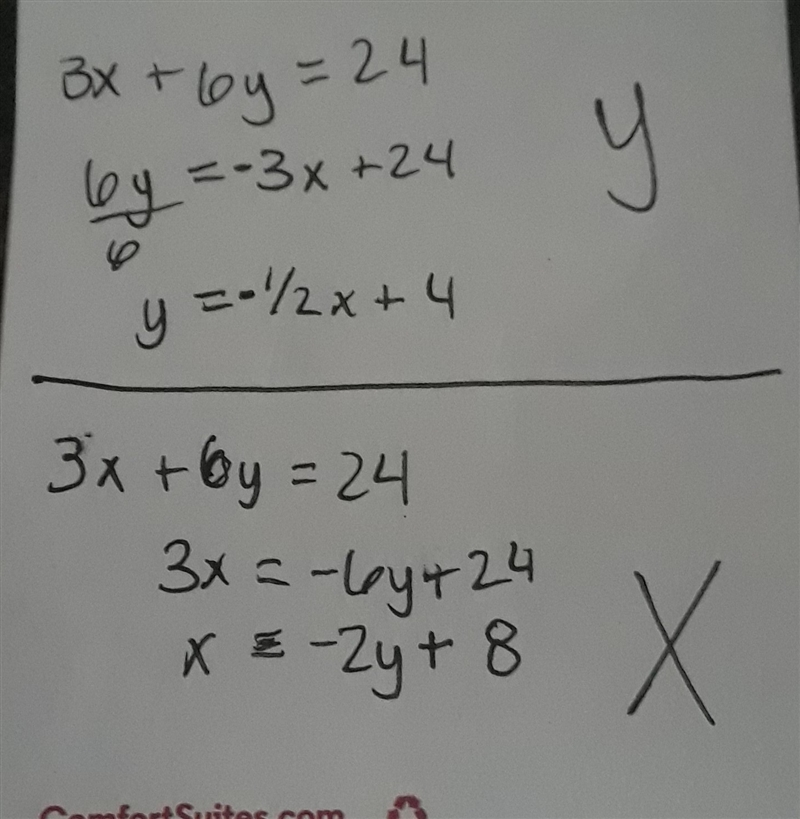 3x + 6y = 24
6y = -3x + 24
6
y
y = -1/2x + 4
3x + 6y = 24
3x = -6y + 24
x = -2y + 8
X
ComfortSuites.com